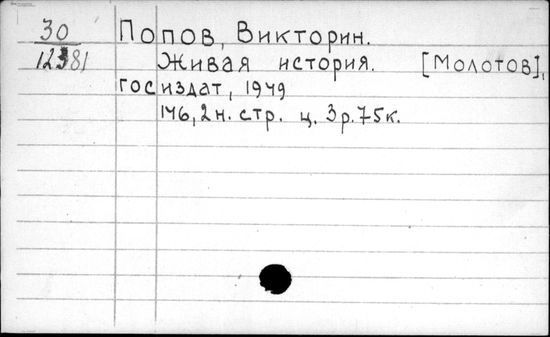 30 Попов, Викторин.
12381 Живая история. [Молотов],
госиздат, 1949
146, 2 н. стр. ц. 3 р. 75 к.